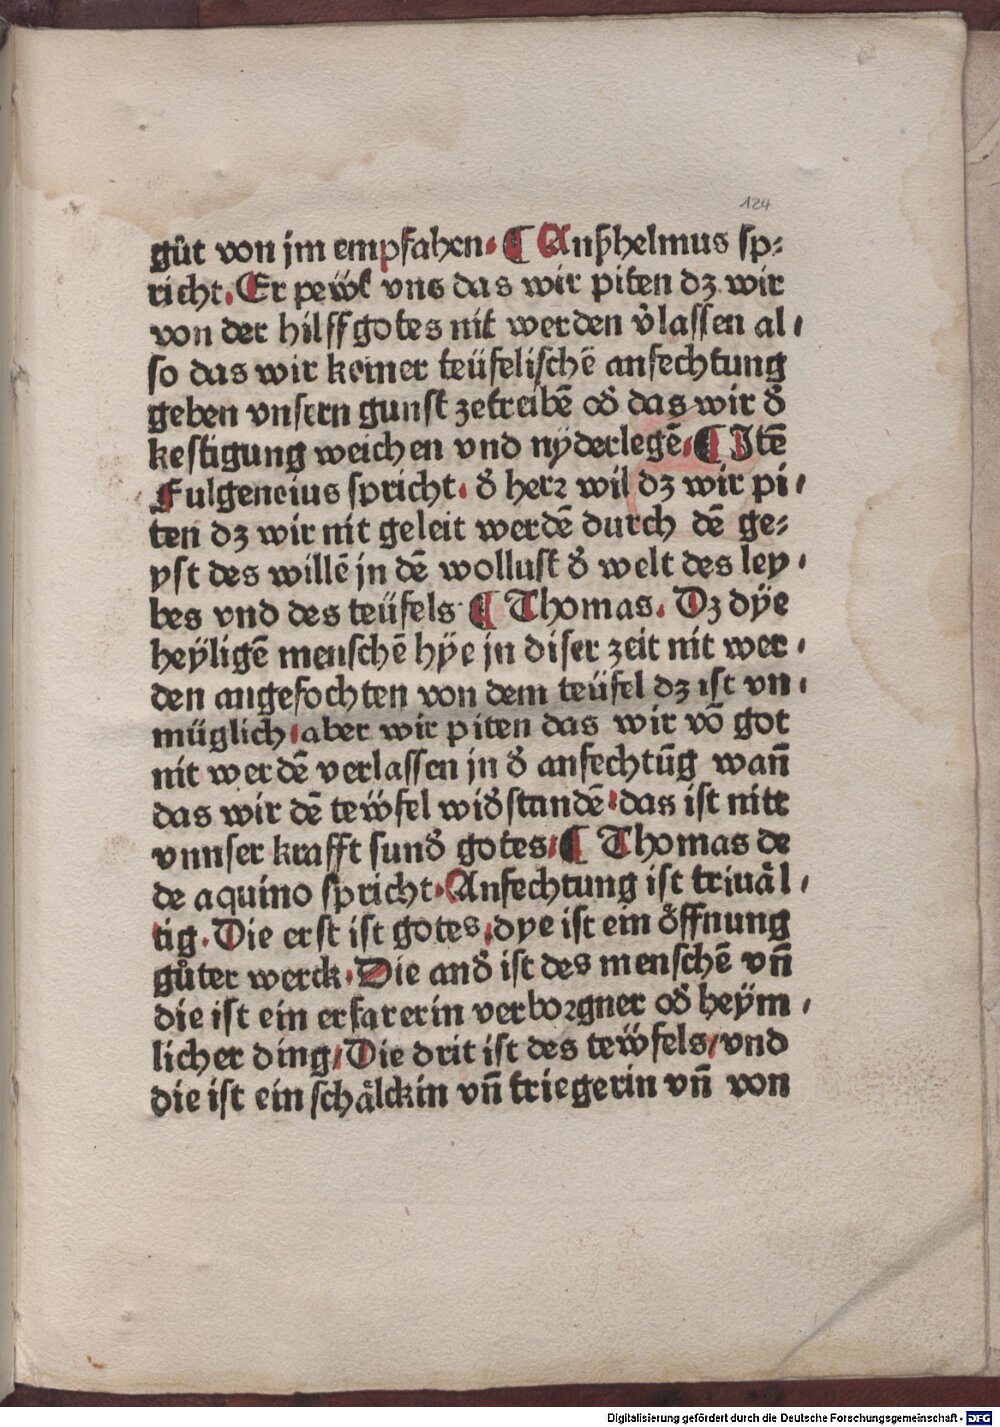 124
gůt von jm empfahen· ¶ Anßhelmus sp⸗
richt. Er pewẗ vns das wir piten dz wir
von der hilff gotes nit werden v̉lassen al⸗
so das wir keiner teüfelischē anfechtung
geben vnsern gunst zetreibē od̉ das wir d̉
kestigung weichen vnd nÿderlegē. ¶ Itē
Fulgencius spricht. d̉ herꝛ wil dz wir pi⸗
ten dz wir nit geleit werdē durch dē ge⸗
yst des willē jn dē wollust d̉ welt des ley⸗
bes vnd des teüfels· ¶ Thomas. Dz dÿe
heÿligē menschē hÿe jn diser zeit nit wer⸗
den angefochten von dem teüfel dz ist vn⸗
müglich/ aber wir piten das wir vō got
nit werdē verlassen jn d̉ anfechtūg wañ
das wir dē tewf̈el wid̉standē· das ist nitt
vnnser krafft sund̉ gotes/ ¶ Thomas de
de aquino spricht· Anfechtung ist triuål⸗
tig. Die erst ist gotes, dye ist ein öffnung
gůter werck· Die and̉ ist des menschē vñ
die ist ein erfarerin verboꝛgner od̉ heÿm⸗
licher ding/ Die drit ist des tewf̈els/ vnd
die ist ein schålckin vñ triegerin vñ von
Digitalisierung gefördert durch die Deutsche Forschungsgemeinschaft - DFG